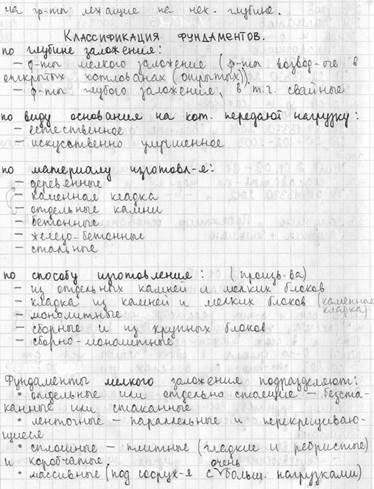 на гр-ты лежащие на нек. глубине.
Классификация фундаментов.
по глубине заложения:
– ф-ты мелкого заложения (ф-ты возвод-ые в
открытых котлованах (открытых))
– ф-ты глубого заложения, в т.ч. свайные
по виду основания на кот. передают нагрузку:
– естественное
– искусственно улучшенное
по материалу изготовл-я:
– деревянные
– каменная кладка
– отдельные камни
– бетонные
– железо-бетонные
– стальные
по способу изготовления: (произв-ва)
– из отдельных камней и мелких блоков
– кладка из камней и мелких блоков (каменная кладка)
– монолитные
– сборные и из крупных блоков
– сборно-монолитные
Фундаменты мелкого заложения подразделяют:
• отдельные или отдельно стоящие – бесста-
канные или стаканные
• ленточные – параллельные и перекрещиваю-
щиеся
• сплошные – плитные (гладкие и ребристые)
и коробчатые.
• массивные (под сооруж-я с очень больш. нагрузками)